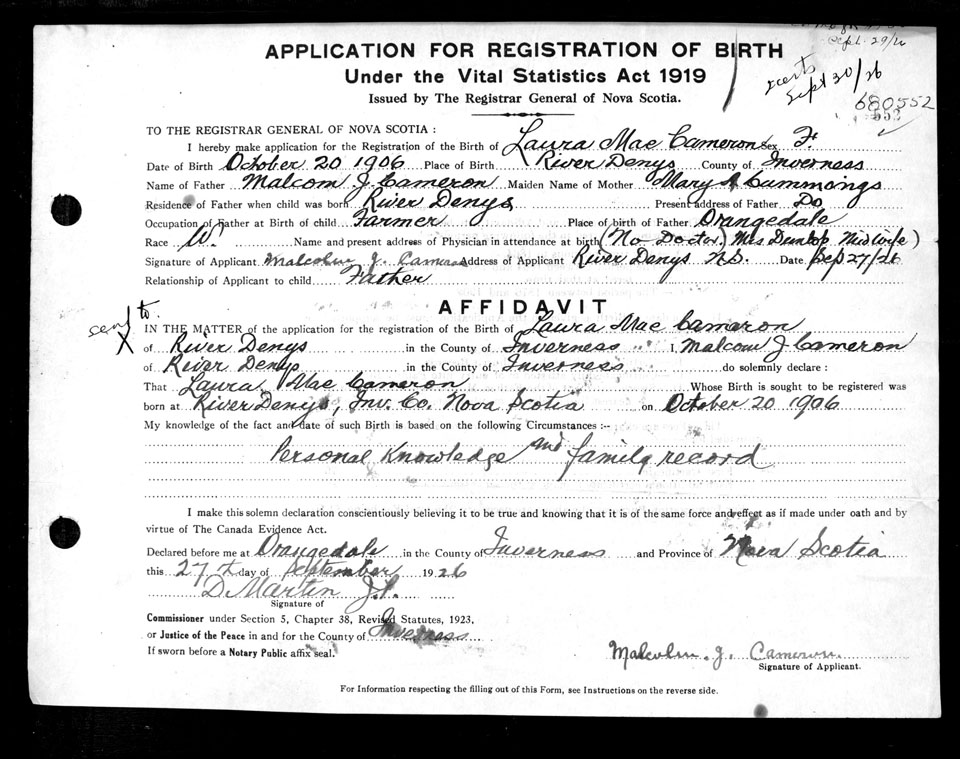 Sept. 29/26
APPLICATION FOR REGISTRATION OF BIRTH
Under the Vital Statistics Act 1919
Issued by The Registrar General of Nova Scotia.
Sept 30/26
680552
552
TO THE REGISTRAR GENERAL OF NOVA SCOTIA :
I hereby make application for the Registration of the Birth of Laura Mae Cameron Sex F.
Date of Birth October 20 1906 Place of Birth River Denys County of Inverness
Name of Father Malcom J. Cameron Maiden Name of Mother Mary A Cummings
Residence of Father when child was born River Denys Present address of Father Do
Occupation of Father at Birth of child Farmer Place of birth of Father Orangedale
Race W. Name and present address of Physician in attendance at birth (No Doctor) Mrs Dunlop Midwife)
Signature of Applicant Malcolm J. Cameron Address of Applicant River Denys N.S. Date Sep 27/26
Relationship of Applicant to child Father
AFFIDAVIT
IN THE MATTER of the application for the registration of the Birth of Laura Mae Cameron
X of River Denys in the County of Inverness I, Malcom J Cameron
of River Denys in the County of Inverness do solemnly declare :
That Laura Mae Cameron Whose Birth is sought to be registered was
born at River Denys, Inv. Co. Nova Scotia on October 20 1906
My knowledge of the fact and date of such Birth is based on the following Circumstances :--
Personal Knowledge and family record
I make this solemn declaration conscientiously believing it to be true and knowing that it is of the same force and effect as if made under oath and by
virtue of The Canada Evidence Act.
Declared before me at Orangedale in the County of Inverness and Province of Nova Scotia
this 27th day of September 1926
D Martin J.P.
Signature of
Commissioner under Section 5, Chapter 38, Revised Statutes, 1923,
or Justice of the Peace in and for the County of Inverness
If sworn before a Notary Public affix seal.
Malcolm. J. Cameron
Signature of Applicant.
For Information respecting the filling out of this Form, see Instructions on the reverse side.